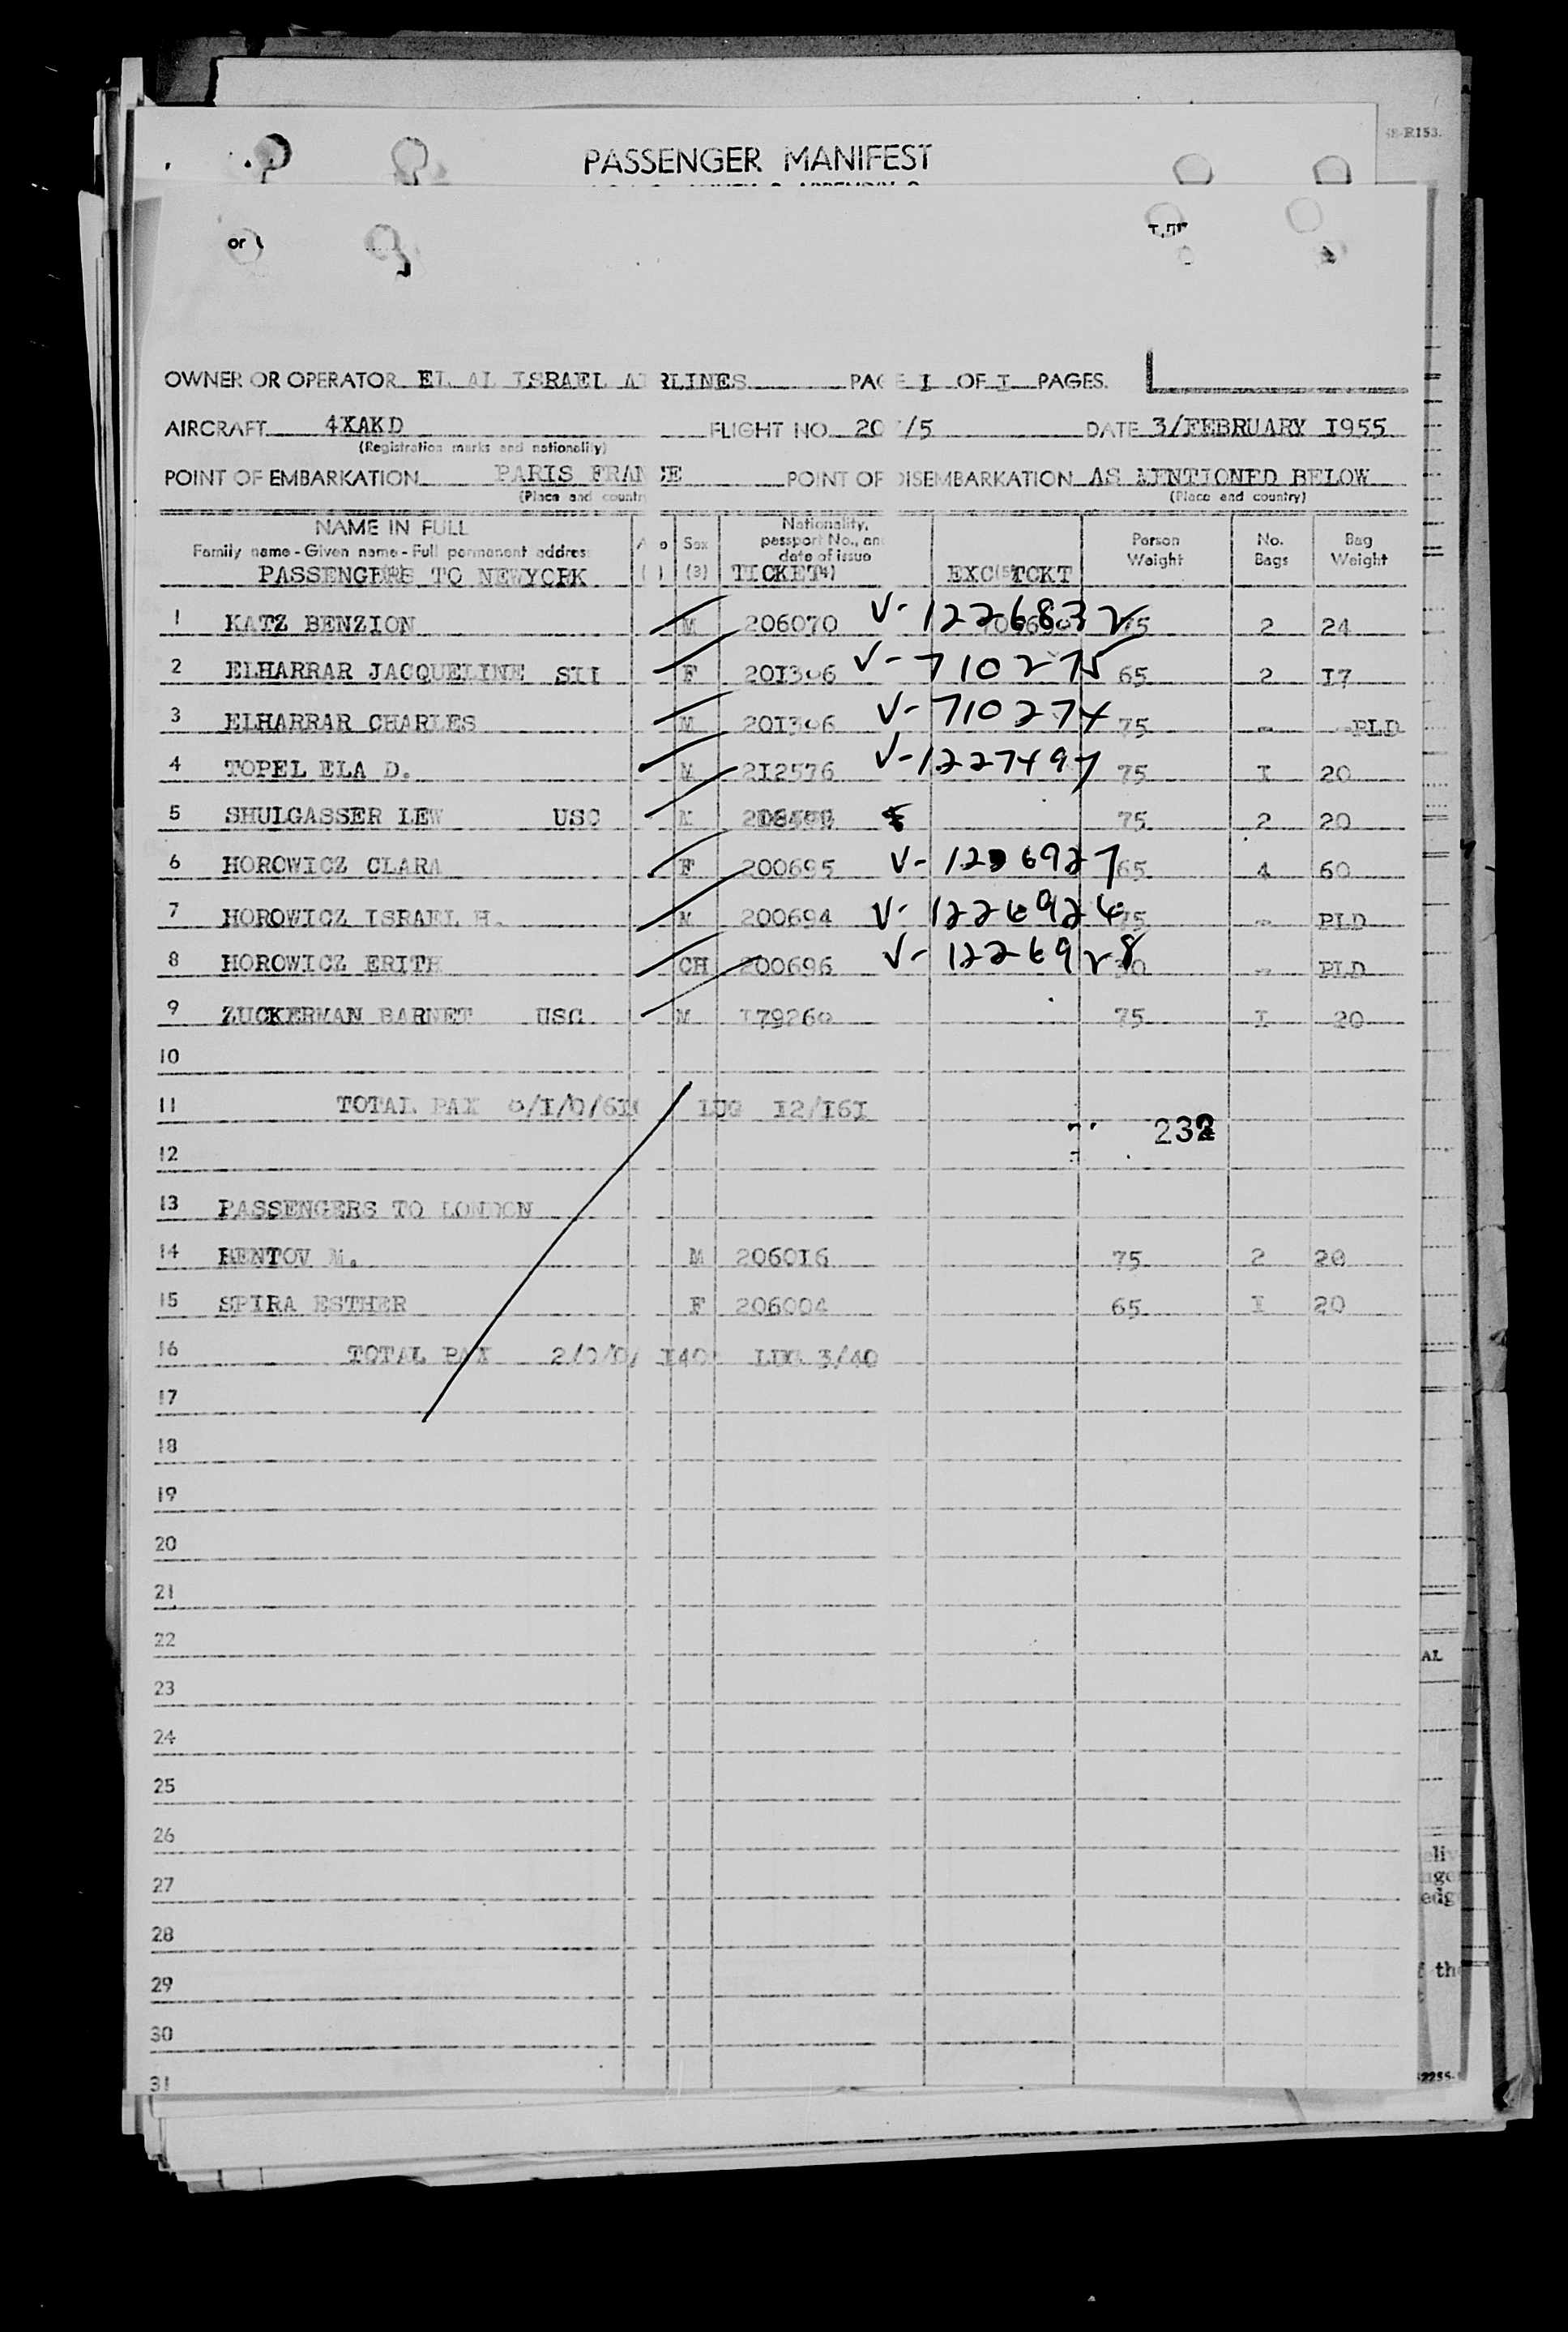 48-R153.
PASSENGER MANIFEST
or
OWNER OR OPERATOR EL AL ISRAEL AIRLINES PAGE I OF I PAGES.
AIRCRAFT 4XAKD FLIGHT NO. 20 /5 DATE 3/FEBRUARY 1955
(Registration marks and nationality)
POINT OF EMBARKATION PARIS FRANCE POINT OF DISEMBARKATION AS MENTIONED BELOW
(Place and country) (Place and country)
NAME IN FULL Nationality, Person No. Bag
Family name - Given name - Full permanent address Sex passport No., and Weight Bags Weight
date of issue
PASSENGERS TO NEWYORK (3) TICKET (4) EXC (5) TCKT
1 KATZ BENZION M 206070 V-1226832 75 2 24
2 ELHARRAR JACQUELINE SII F 201306 V-710275 65 2 I7
3 ELHARRAR CHARLES M 201306 V-710274 75 - -PLD
4 TOPEL ELA D. M 2I2576 V-1227497 75 I 20
5 SHULGASSER LEW USC M 75 2 20
6 HOROWICZ CLARA F 200695 V-1226927 65 4 60
7 HOROWICZ ISRAEL H. M 200694 V-1226926 75 - PLD
8 HOROWICZ ERITH CH 200696 V-1226928 30 - PLD
9 ZUCKERMAN BARNET USC M I79260 75 I 20
10
11 TOTAL PAX 8/I/0/610 LUG I2/I6I
232
12
13 PASSENGERS TO LONDON
14 BENTOV M. M 2060I6 75 2 20
15 SPIRA ESTHER F 206004 65 I 20
16 TOTAL PAX 2/0/0/ I40 LUG 3/40
17
18
19
20
21
22
AL
23
24
25
26
27
edg
28
29
30
31